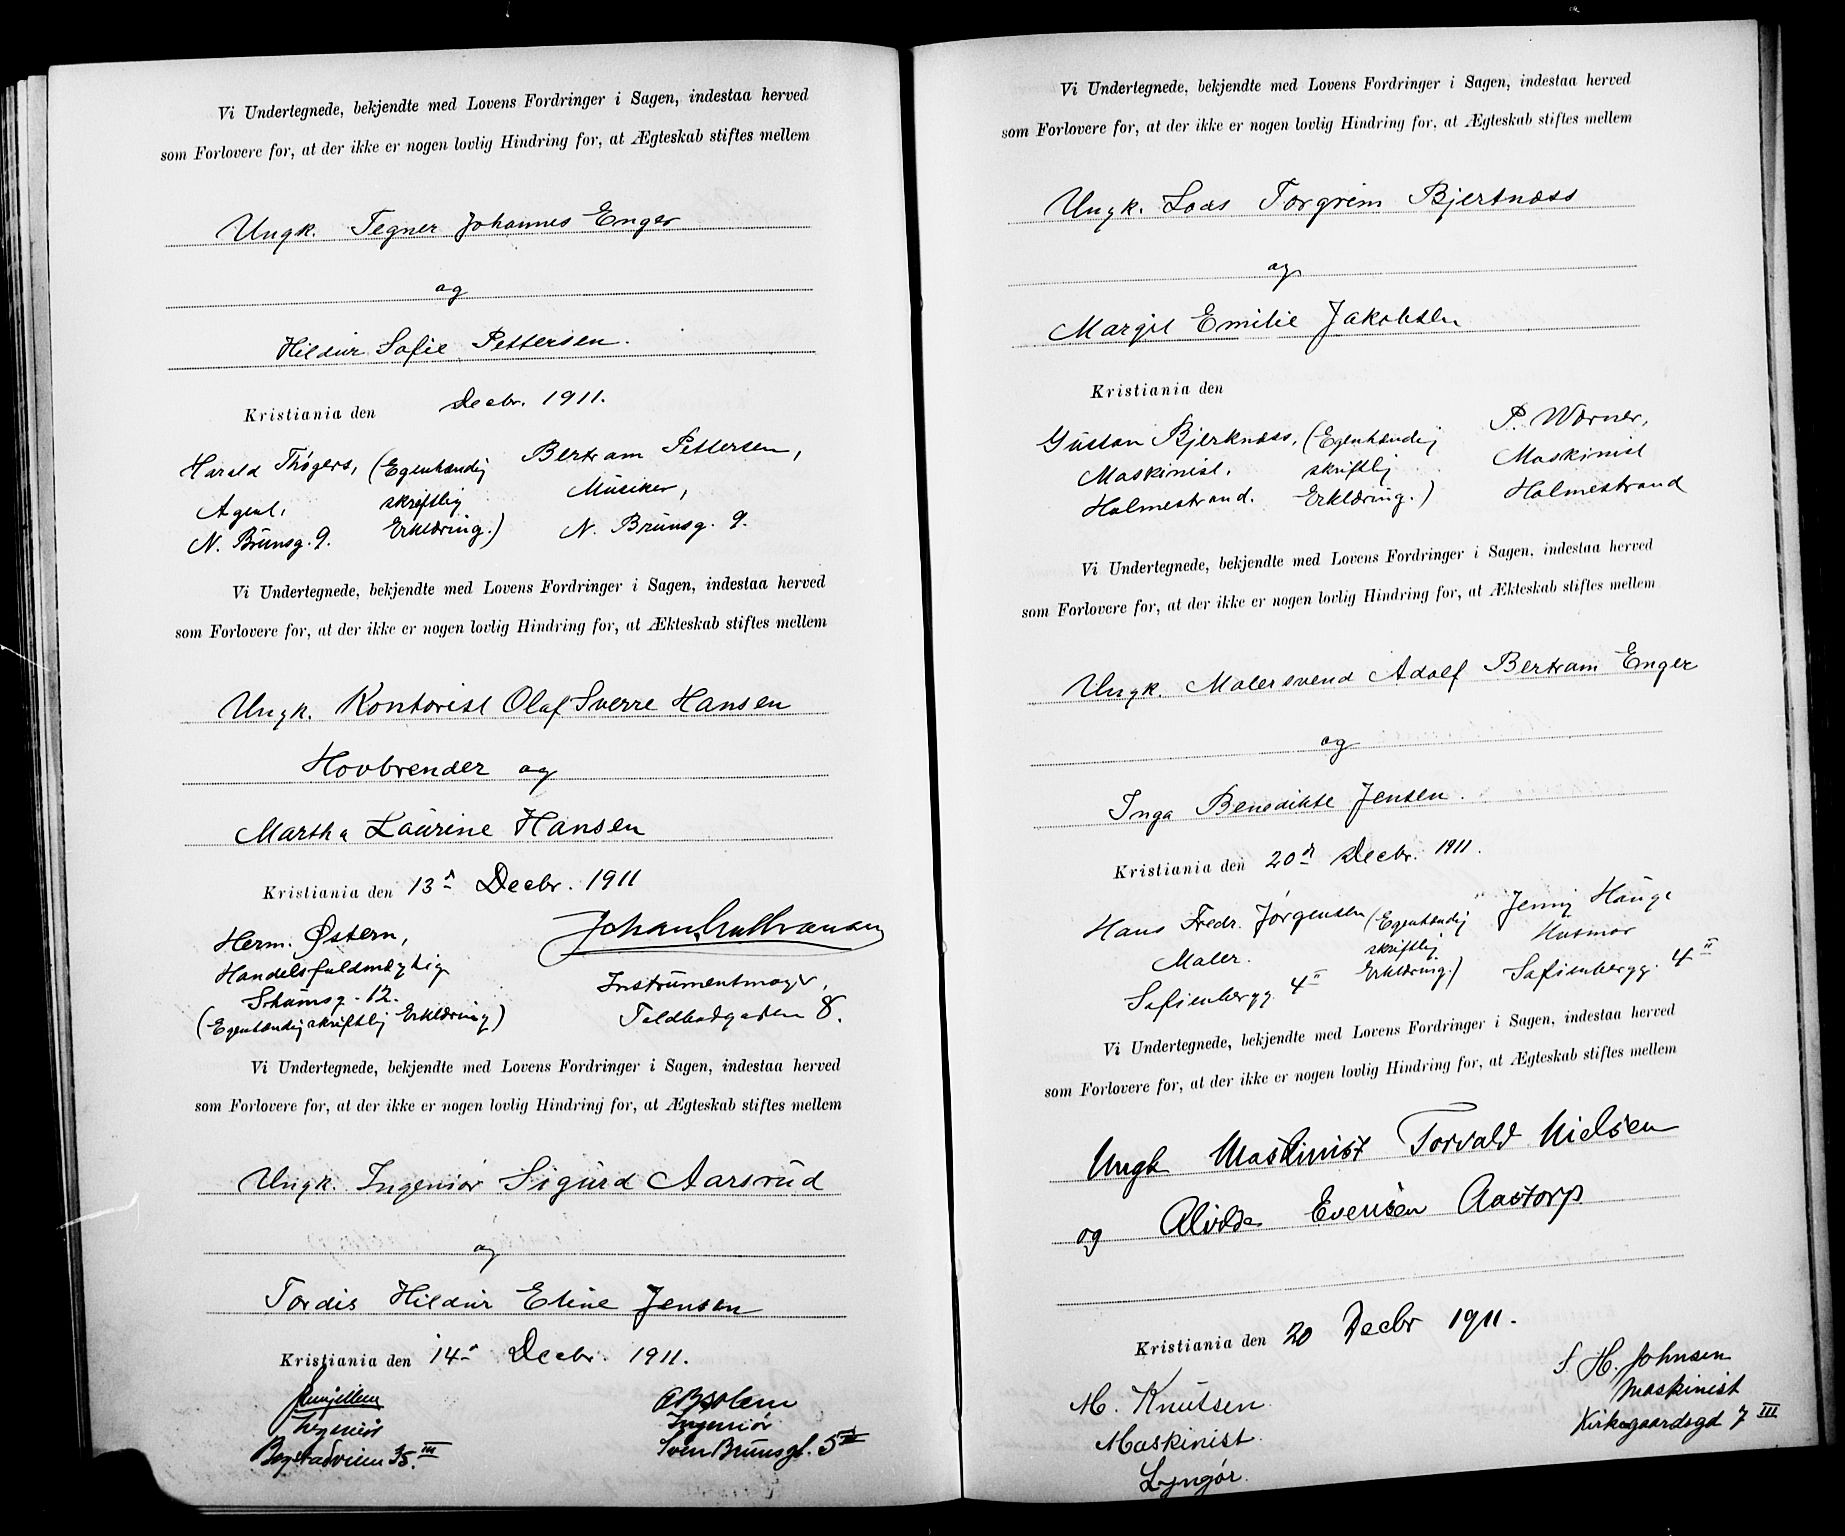 Vi Undertegnede, bekjendte med Lovens Fordringer i Sagen, indestaa herved
som Forlovere for, at der ikke er nogen lovlig Hindring for, at Ægteskab stiftes mellem
Ungk. Tegner Johannes Enger
og
Hildur Sofie Pettersen.
Kristiania den Decbr. 1911.
Harald Thøgers, (Egenhændig Bertram Pettersen,
Agent, skriftlig Musiker,
N. Brunsg. 9. Erklæring.) N. Brunsg. 9.
Vi Undertegnede, bekjendte med Lovens Fordringer i Sagen, indestaa herved
som Forlovere for, at der ikke er nogen lovlig Hindring for, at Ækteskab stiftes mellem
Ungk. Kontorist Olaf Sverre Hansen
Hovbrender og
Martha Laurine Hansen
Kristiania den 13d Decbr. 1911
Herm. Østern, Johan Gulbransen
Handelsfuldmægtig Instrumentmager,
Stamsg. 12. Toldbodgaden 8.
(Egenhændig skriftlig Erklæring)
Vi Undertegnede, bekjendte med Lovens Fordringer i Sagen, indestaa herved
som Forlovere for, at der ikke er nogen lovlig Hindring for, at Ægteskab stiftes mellem
Ungk. Ingeniør Sigurd Aarsrud
og
Tordis Hildur Eline Jensen
Kristiania den 14d Decbr. 1911.
Ingeniør Ingeniør
Bogstadveien 35. III Sven Brunsgt. 5 II
Vi Undertegnede, bekjendte med Lovens Fordringer i Sagen, indestaa herved
som Forlovere for, at der ikke er nogen lovlig Hindring for, at Ægteskab stiftes mellem
Ungk. Loos Torgrim Bjertnæss
og
Margit Emilie Jakobsen
Kristiania den
Gustav Bjerknæss, (Egenhændig P. Wørner,
Maskinist. skriftlig Maskinist
Holmestrand. Erklæring.) Holmestrand
Vi Undertegnede, bekjendte med Lovens Fordringer i Sagen, indestaa herved
som Forlovere for, at der ikke er nogen lovlig Hindring for, at Ækteskab stiftes mellem
Ungk. Malersvend Adolf Bertram Enger
og
Inga Benedikte Jensen.
Kristiania den 20d Decbr. 1911.
Hans Fredr. Jørgensen (Egenhændig Jenny Hauge
Maler. skriftlig Husmor
Sofienbergg. 4 II Erklæring.) Sofienbergg. 4 II
Vi Undertegnede, bekjendte med Lovens Fordringer i Sagen, indestaa herved
som Forlovere for, at der ikke er nogen lovlig Hindring for, at Ægteskab stiftes mellem
Ungk Maskinist Torvald Nielsen
og Alvilde Evensen Aastorp
Kristiania den 20 Decbr 1911.
M. Knutsen S H. Johnsen
Maskinist. Maskinist
Lyngør. Kirkegaardsgd 7 III